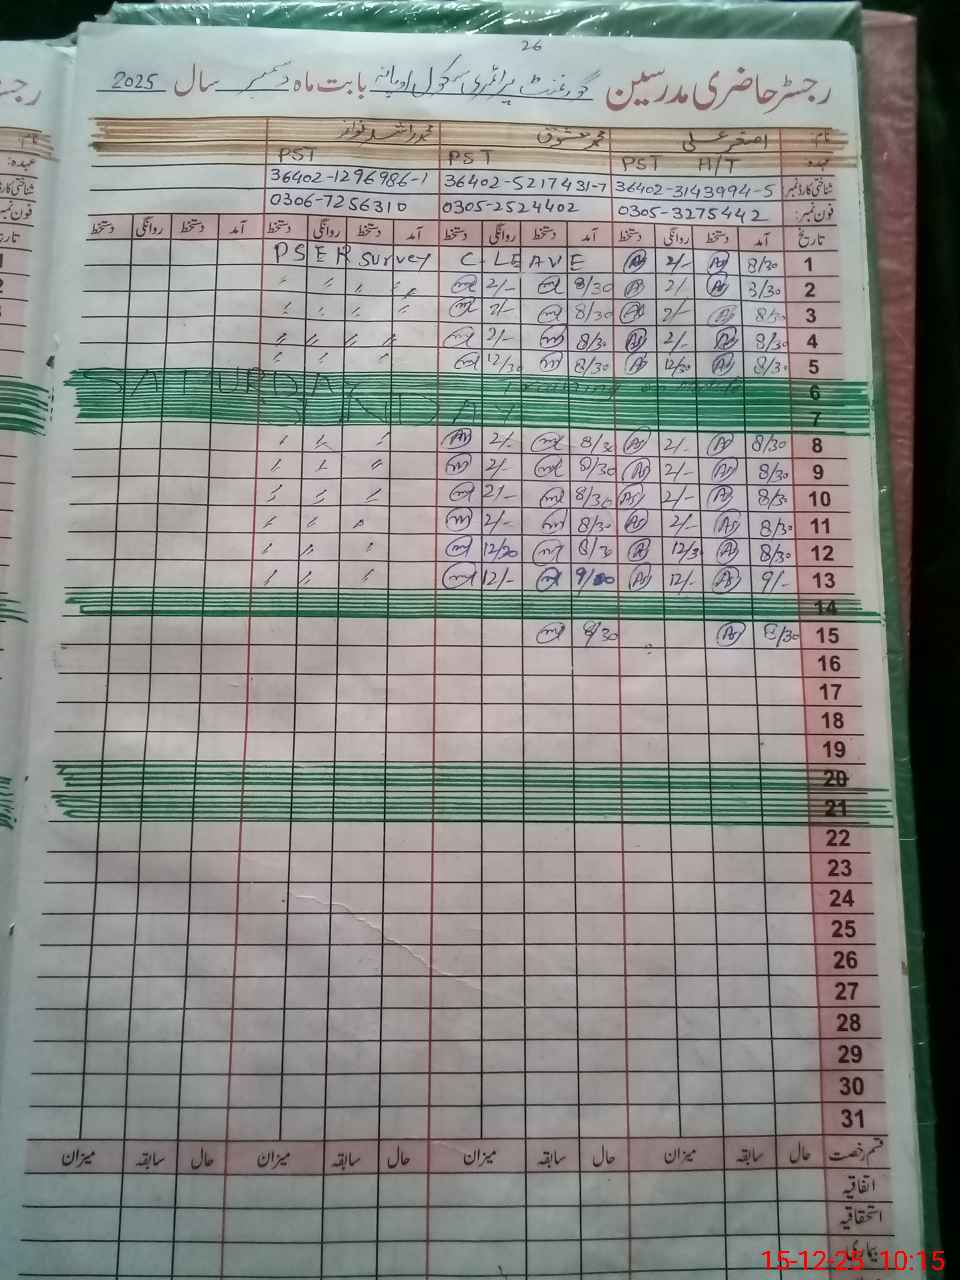 26
رجسٹر حاضری مدرسین گورنمنٹ پرائمری سکول بابت ماہ دسمبر سال 2025
نام: اصغر علی محمد معشوق محمد راشد نواز
عہدہ: PST H/T PST PST
شناختی کارڈ نمبر 36402-3143994-5 36402-5217431-7 36402-1296986-1
فون نمبر: 0305-3275442 0305-2524402 0306-7256310
تاریخ آمد دستخط روانگی دستخط آمد دستخط روانگی دستخط آمد دستخط روانگی دستخط آمد دستخط روانگی دستخط
1 8/30 2/- C-LEAVE PSER Survey
2 8/30 2/ 8/30 2/- " " " "
3 8/30 2/ 8/30 2/- " " " "
4 8/30 2/- 8/30 2/- " " " "
5 8/30 12/30 8/30 12/30 " " "
6 SATURDAY
7 SUNDAY
8 8/30 2/- 8/30 2/- " " "
9 8/30 2/- 8/30 2/- " " "
10 8/30 2/- 8/30 2/- " " "
11 8/30 2/- 8/30 2/- " " "
12 8/30 12/3 8/30 12/30 " " "
13 9/- 12/- 9/00 12/- " " "
14
15 8/30 8/30
16
17
18
19
20
21
22
23
24
25
26
27
28
29
30
31
قسم رخصت حال سابقہ میزان حال سابقہ میزان حال سابقہ میزان حال سابقہ میزان
اتفاقیہ
استحقاقیہ
بیماری
15-12-25 10:15